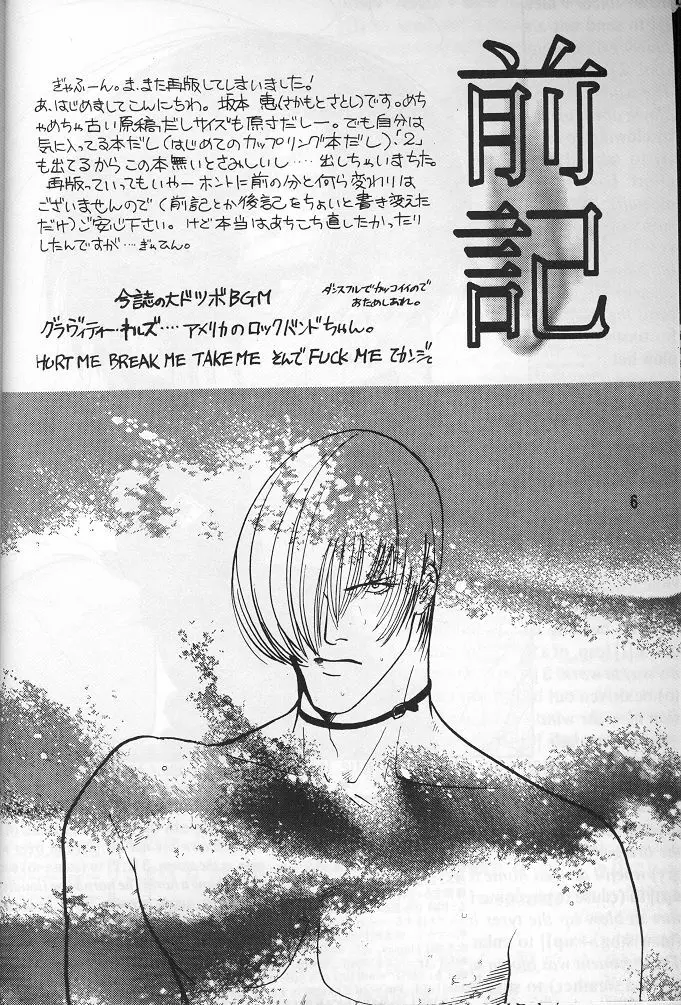 前記
ぎゃふーん。ま、また再版してしまいました!
あ、はじめましてこんにちわ。坂本 恵(さかもとさとし)です。めち
ゃめちゃ古い原稿だしサイズも原寸だしー。でも自分は
気に入ってる本だし(はじめてのカップリング本だし)、「2」
も出てるからこの本無いとさみしいし‥‥出しちゃいまちた。
再版っていってもいやーホントに前の分と何ら変わりは
ございませんので(前記とか後記をちょいと書き変えた
だけ)ご安心下さい。けど本当はあちこち直したかったり
したんですが…ぎんてん。
今誌の大ドツボBGM
ダンスフルでカッコイイので
おためしあれ。
グラヴィティー・キルズ‥‥アメリカのロックバンドちゃん。
HURT ME BREAK ME TAKE ME そんで FUCK ME てカンジで
6